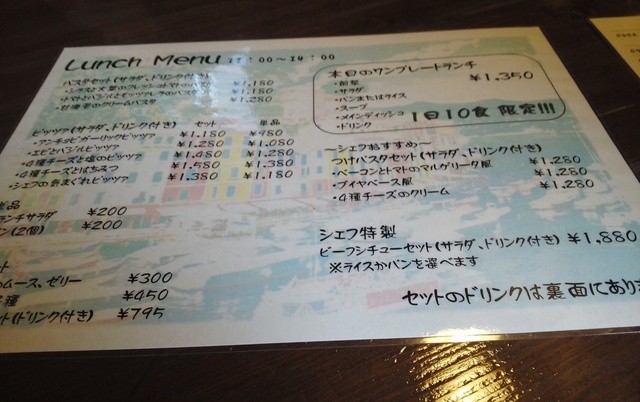 Lunch Menu 11:00～14:00
パスタセット(サラダ、ドリンク付き)
・シラスと大葉のフレッシュトマトのパスタ ¥1,180
・トマトとバジルとモッツァレラのパスタ ¥1,180
のクリームパスタ ¥1,280
ピッツァ(サラダ、ドリンク付き) セット 単品
・アンチョビガーリックピッツァ ¥1,180 ¥980
・エビとバジルピッツァ ¥1,280 ¥1,080
・4種チーズと塩のピッツァ ¥1,480 ¥1,280
・4種チーズとはちみつ ¥1,580 ¥1,380
・シェフの気まぐれピッツァ ¥1,380 ¥1,180
品
ンチサラダ ¥200
ン(2個) ¥200
ット
のムース、ゼリー ¥300
種 ¥450
ット(ドリンク付き) ¥795
本日のワンプレートランチ
¥1,350
・前菜
・サラダ
・パンまたはライス
・スープ
・メインディッシュ
・ドリンク
1日10食 限定!!!
～シェフおすすめ～
つけパスタセット(サラダ、ドリンク付き)
・ベーコンとトマトのマルゲリータ風 ¥1,280
・ブイヤベース風 ¥1,280
・4種チーズのクリーム ¥1,280
シェフ特製
ビーフシチューセット(サラダ、ドリンク付き) ¥1,880
※ライスかパンを選べます
セットのドリンクは裏面にありま